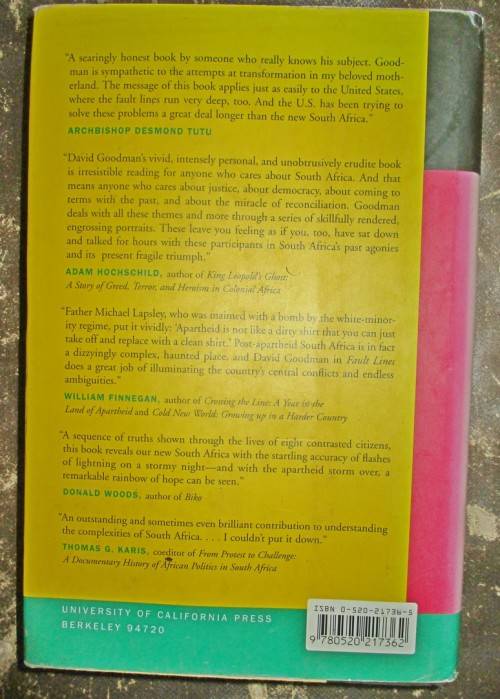 “A searingly honest book by someone who really knows his subject. Good-
man is sympathetic to the attempts at transformation in my beloved moth-
erland. The message of this book applies just as easily to the United States,
where the fault lines run very deep, too. And the U.S. has been trying to
solve these problems a great deal longer than the new South Africa.”
ARCHBISHOP DESMOND TUTU
“David Goodman’s vivid, intensely personal, and unobtrusively erudite book
is irresistible reading for anyone who cares about South Africa. And that
means anyone who cares about justice, about democracy, about coming to
terms with the past, and about the miracle of reconciliation. Goodman
deals with all these themes and more through a series of skillfully rendered,
engrossing portraits. These leave you feeling as if you, too, have sat down
and talked for hours with these participants in South Africa’s past agonies
and its present fragile triumph.”
ADAM HOCHSCHILD, author of King Leopold’s Ghost:
A Story of Greed, Terror, and Heroism in Colonial Africa
“Father Michael Lapsley, who was maimed with a bomb by the white-minor-
ity regime, put it vividly: ‘Apartheid is not like a dirty shirt that you can just
take off and replace with a clean shirt.’ Post-apartheid South Africa is in fact
a dizzyingly complex, haunted place, and David Goodman in Fault Lines
does a great job of illuminating the country’s central conflicts and endless
ambiguities.”
WILLIAM FINNEGAN, author of Crossing the Line: A Year in the
Land of Apartheid and Cold New World: Growing up in a Harder Country
“A sequence of truths shown through the lives of eight contrasted citizens,
this book reveals our new South Africa with the startling accuracy of flashes
of lightning on a stormy night—and with the apartheid storm over, a
remarkable rainbow of hope can be seen.”
DONALD WOODS, author of Biko
“An outstanding and sometimes even brilliant contribution to understanding
the complexities of South Africa. . . . I couldn’t put it down.”
THOMAS G. KARIS, coeditor of From Protest to Challenge:
A Documentary History of African Politics in South Africa
UNIVERSITY OF CALIFORNIA PRESS
BERKELEY 94720
ISBN 0-520-21736-5
9 780520 217362